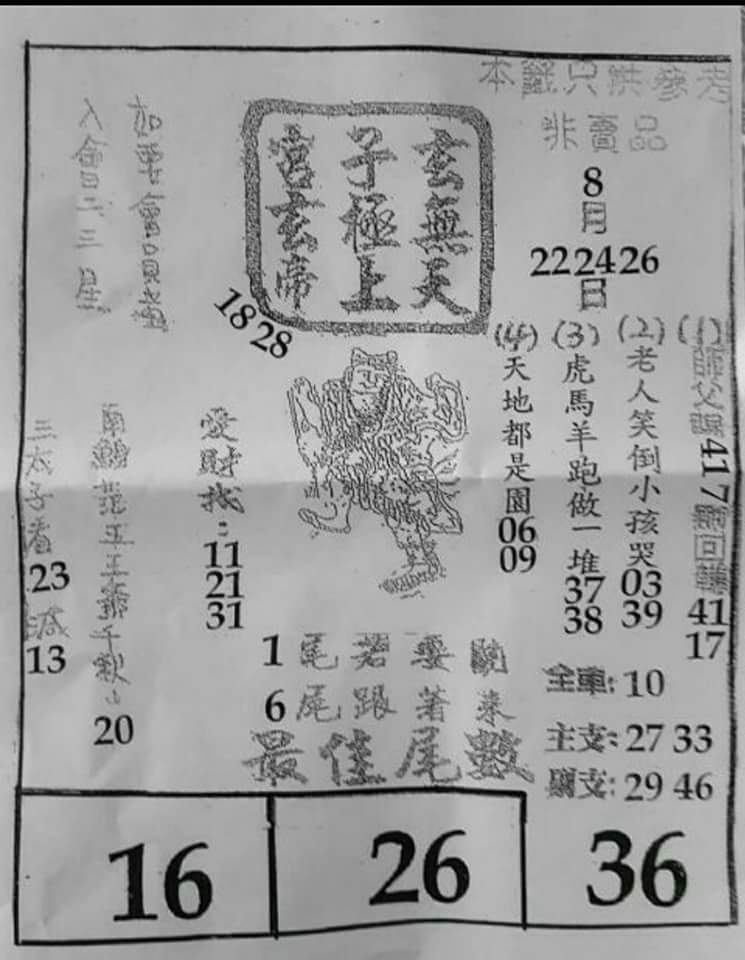 本籤只供參考
非賣品
8
月
22 24 26
日
玄無天
子極上
宮玄帝
18 28
(1)師父 417 回
41
17
(2)老人笑倒小孩哭
03
39
(3)虎馬羊跑做一堆
37
38
(4)天地都是圓
06
09
全車:10
主支:27 33
支:29 46
如要會員
入會二三星
愛財找:
11
21
31
南鯤 王王爺千秋
20
三太子看
23
減
13
1尾若要開
6尾跟著來
最佳尾數
16
26
36